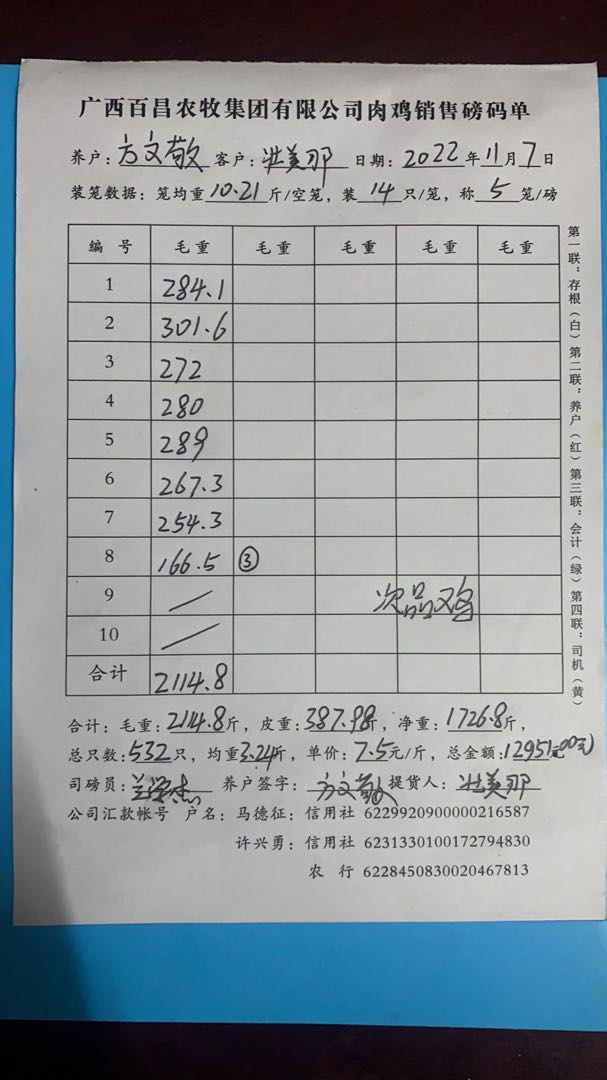 广西百昌农牧集团有限公司肉鸡销售磅码单
养户：方文敬 客户：壮美那 日期：2022年11月7日
装笼数据：笼均重10.21斤/空笼，装14只/笼，称5笼/磅
编号 毛重 毛重 毛重 毛重 毛重
1 284.1
2 301.6
3 272
4 280
5 289
6 267.3
7 254.3
8 166.5 ③
9 / 次品鸡
10 /
合计 2114.8
合计：毛重：2114.8斤，皮重：387.98斤，净重：1726.8斤，
总只数：532只，均重3.24斤，单价：7.5元/斤，总金额：12951元
司磅员： 养户签字：方文敬 提货人：壮美那
公司汇款帐号 户名：马德征：信用社 6229920900000216587
许兴勇：信用社 6231330100172794830
农行 6228450830020467813
第一联：存根（白）第二联：养户（红）第三联：会计（绿）第四联：司机（黄）